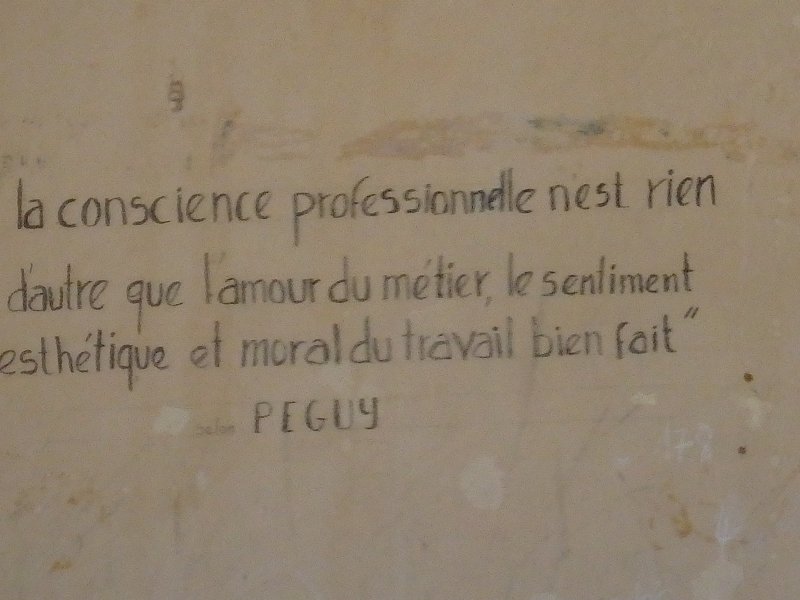 la conscience professionnelle n'est rien
d'autre que l'amour du métier, le sentiment
esthétique et moral du travail bien fait"
selon PEGUY